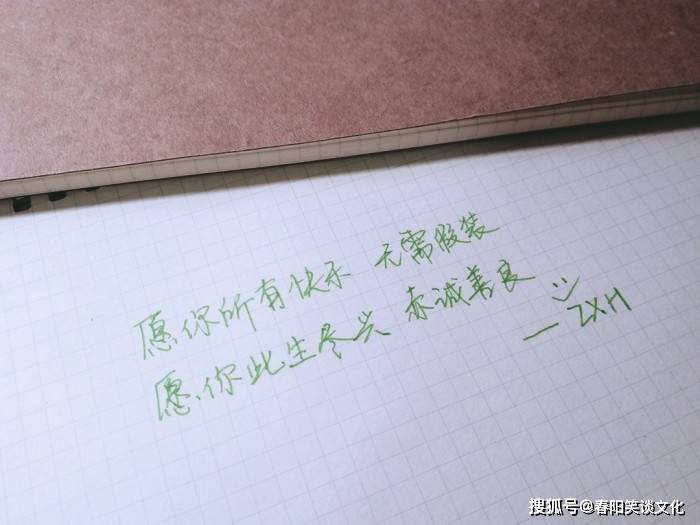 愿你所有快乐 无需假装
愿你此生尽兴 赤诚善良
—ZXH
搜狐号@春阳笑谈文化